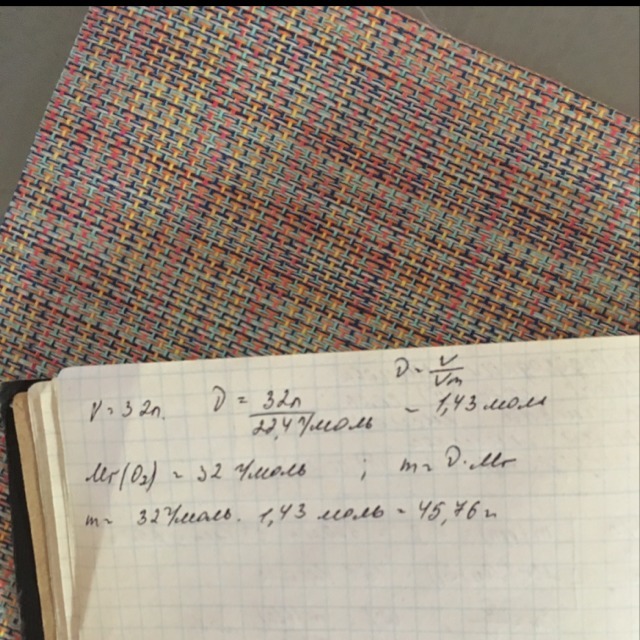 D = V/Vm
V = 32л. D = 32л / 22,4 л/моль = 1,43 моль
Mr(O₂) = 32 г/моль ; m = D · Mr
m = 32 г/моль · 1,43 моль = 45,76 г